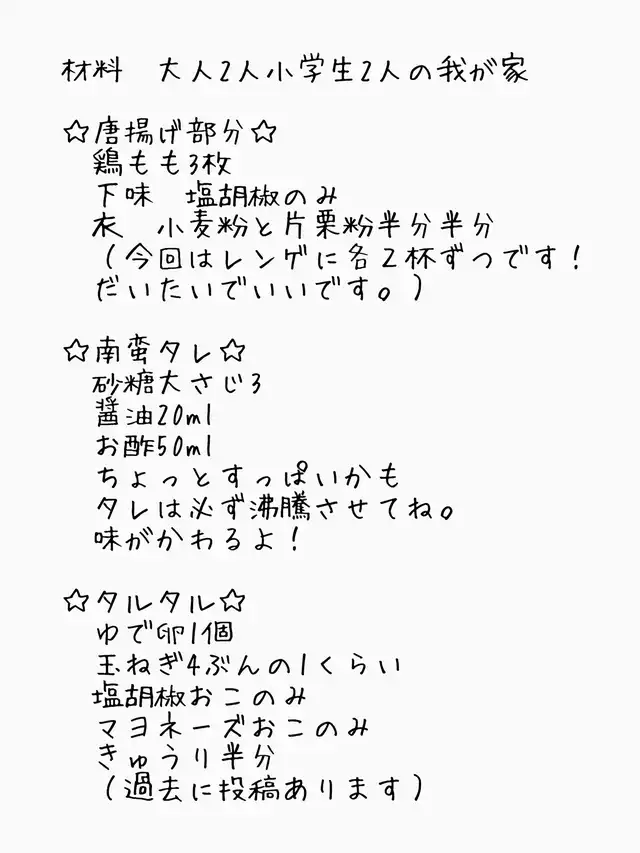 材料　大人2人小学生2人の我が家
☆唐揚げ部分☆
鶏もも3枚
下味　塩胡椒のみ
衣　小麦粉と片栗粉半分半分
（今回はレンゲに各２杯ずつです！
だいたいでいいです。）
☆南蛮タレ☆
砂糖大さじ3
醤油20ml
お酢50ml
ちょっとすっぱいかも
タレは必ず沸騰させてね。
味がかわるよ！
☆タルタル☆
ゆで卵1個
玉ねぎ4ぶんの1くらい
塩胡椒おこのみ
マヨネーズおこのみ
きゅうり半分
（過去に投稿あります）